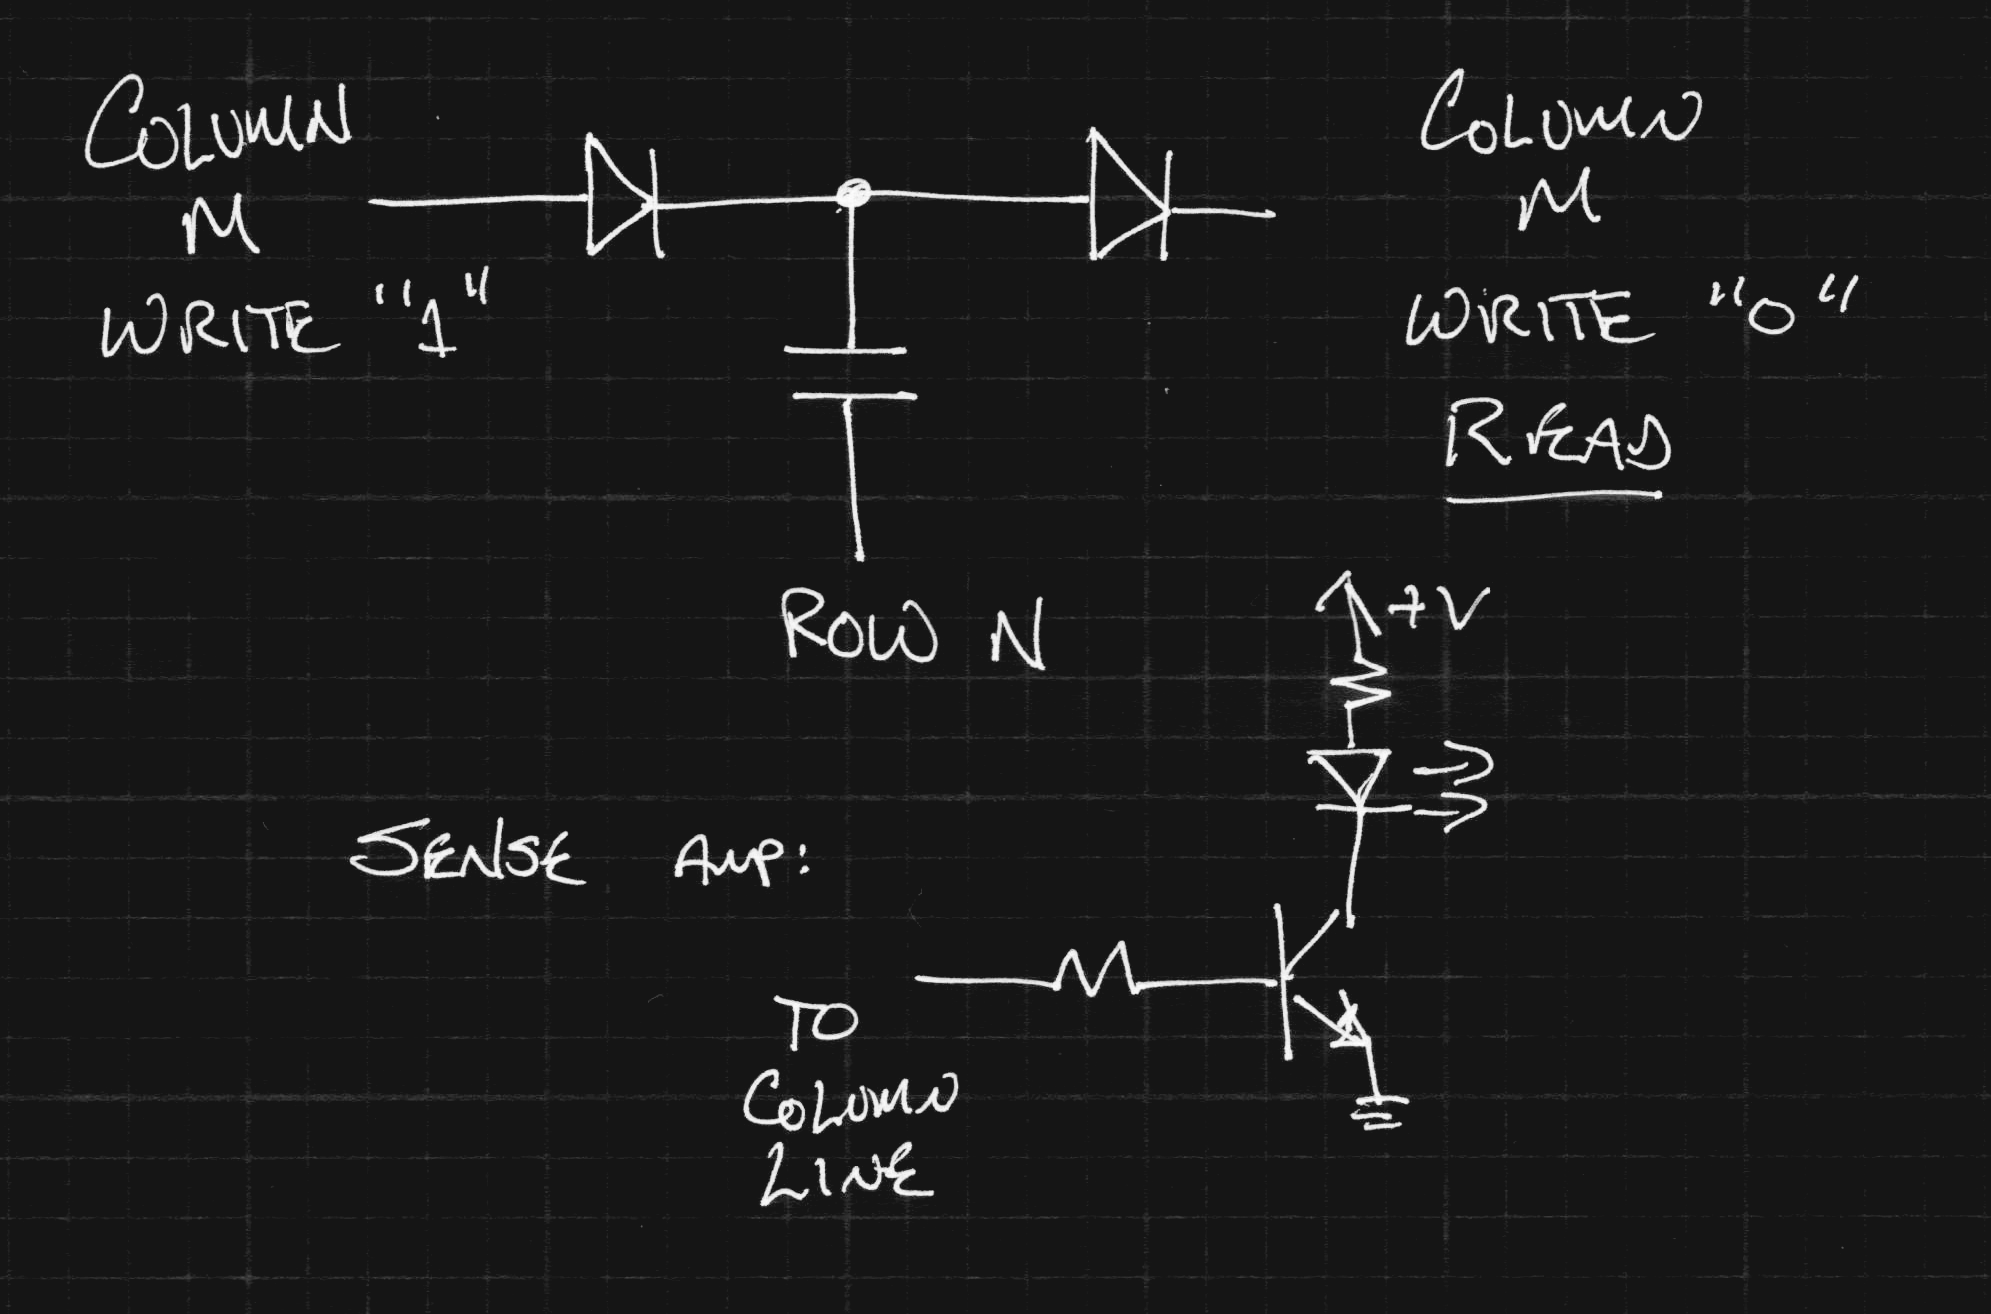 COLUMN
M
WRITE "1"
COLUMN
M
WRITE "0"
READ
ROW N
+V
SENSE AMP:
TO
COLUMN
LINE